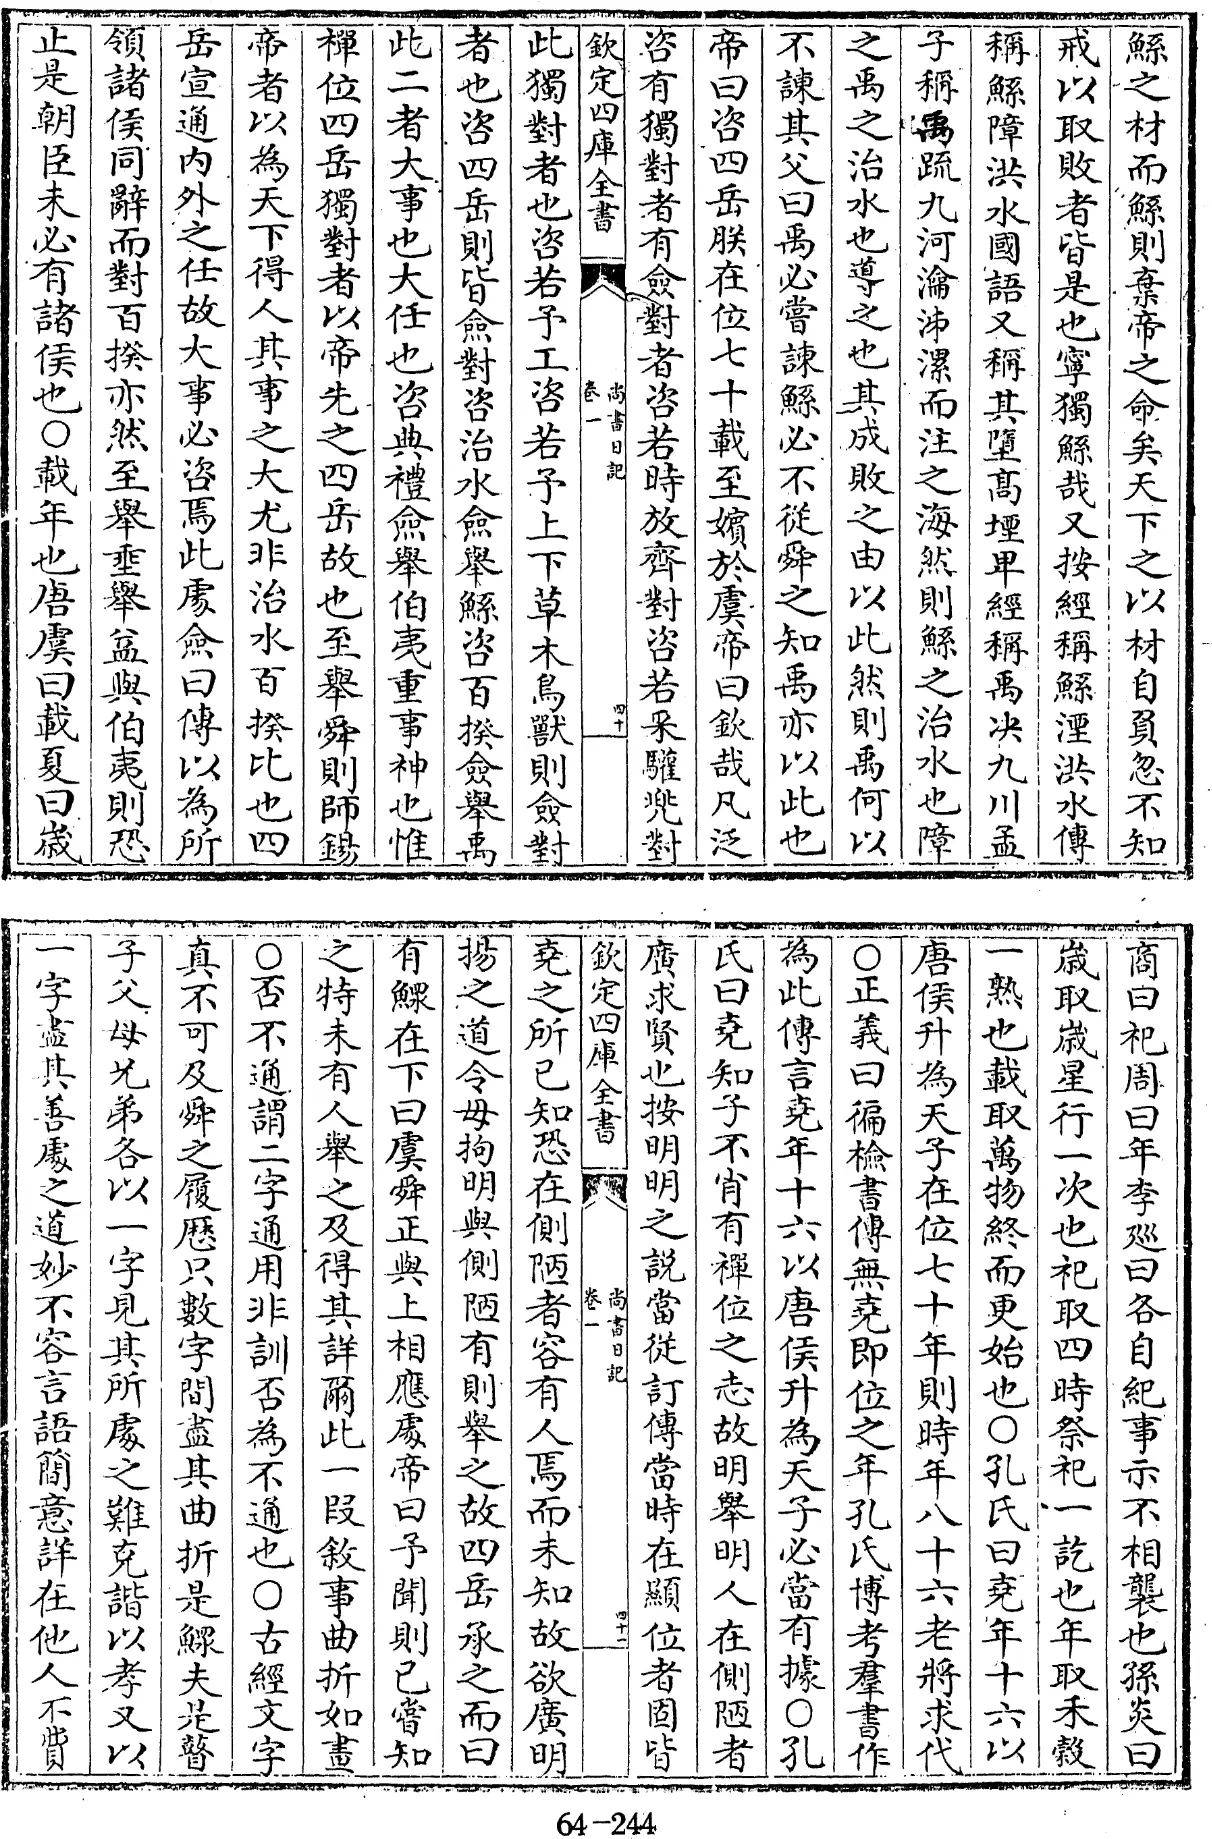 鯀之材而鯀則棄帝之命矣天下之以材自負忽不知
戒以取敗者皆是也寧獨鯀哉又按經稱鯀湮洪水傳
稱鯀障洪水國語又稱其墮髙堙卑經稱禹决九川孟
子稱禹疏九河瀹泲漯而注之海然則鯀之治水也障
之禹之治水也導之也其成敗之由以此然則禹何以
不諫其父曰禹必嘗諫鯀必不從舜之知禹亦以此也
帝曰咨四岳朕在位七十載至嬪於虞帝曰欽哉凡泛
咨有獨對者有僉對者咨若時放齊對咨若采驩兠對
欽定四庫全書
尚書日記
卷一
四十
此獨對者也咨若予工咨若予上下草木鳥獸則僉對
者也咨四岳則皆僉對咨治水僉舉鯀咨百揆僉舉禹
此二者大事也大任也咨典禮僉舉伯夷重事神也惟
禪位四岳獨對者以帝先之四岳故也至舉舜則師錫
帝者以為天下得人其事之大尤非治水百揆比也四
岳宣通内外之任故大事必咨焉此處僉曰傳以為所
領諸侯同辭而對百揆亦然至舉垂舉益與伯夷則恐
止是朝臣未必有諸侯也○載年也唐虞曰載夏曰歳
商曰祀周曰年李廵曰各自紀事示不相襲也孫炎曰
歳取歳星行一次也祀取四時祭祀一訖也年取禾穀
一熟也載取萬物終而更始也○孔氏曰堯年十六以
唐侯升為天子在位七十年則時年八十六老將求代
○正義曰徧檢書傳無堯即位之年孔氏博考羣書作
為此傳言堯年十六以唐侯升為天子必當有據○孔
氏曰堯知子不肖有禪位之志故明舉明人在側陋者
廣求賢也按明明之説當從訂傳當時在顯位者固皆
欽定四庫全書
尚書日記
卷一
四十一
堯之所已知恐在側陋者容有人焉而未知故欲廣明
揚之道令毋拘明與側陋有則舉之故四岳承之而曰
有鰥在下曰虞舜正與上相應處帝曰予聞則已嘗知
之特未有人舉之及得其詳爾此一段敘事曲折如畫
○否不通謂二字通用非訓否為不通也○古經文字
真不可及舜之履歴只數字間盡其曲折是鰥夫是瞽
子父母兄弟各以一字見其所處之難克諧以孝又以
一字盡其善處之道妙不容言語簡意詳在他人不費
64-244